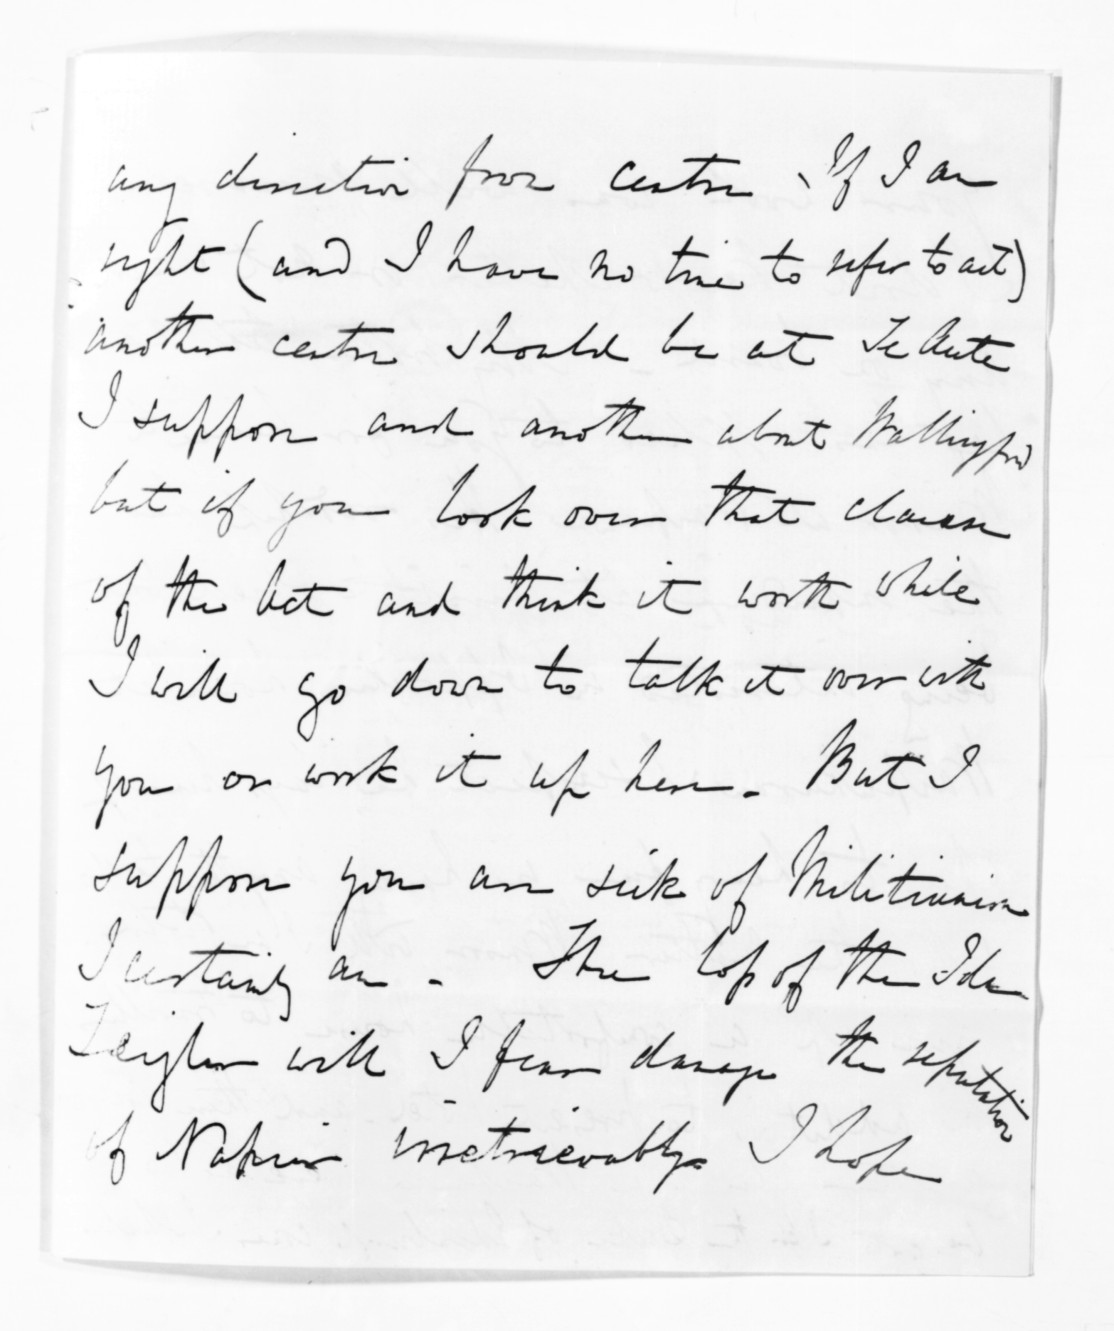 any direction from centre. If I am
right (and I have no time to refer to act)
another centre should be at Te Aute
I suppose and another about Wallingford
but if you look over that clause
of the Act and think it worth while
I will go down to talk it over with
you or work it up here - But I
suppose you are sick of Militiaism
I certainly am - The loss of the Ida
Zeigler will I fear damage the reputation
of Napier irretrievably. I hope